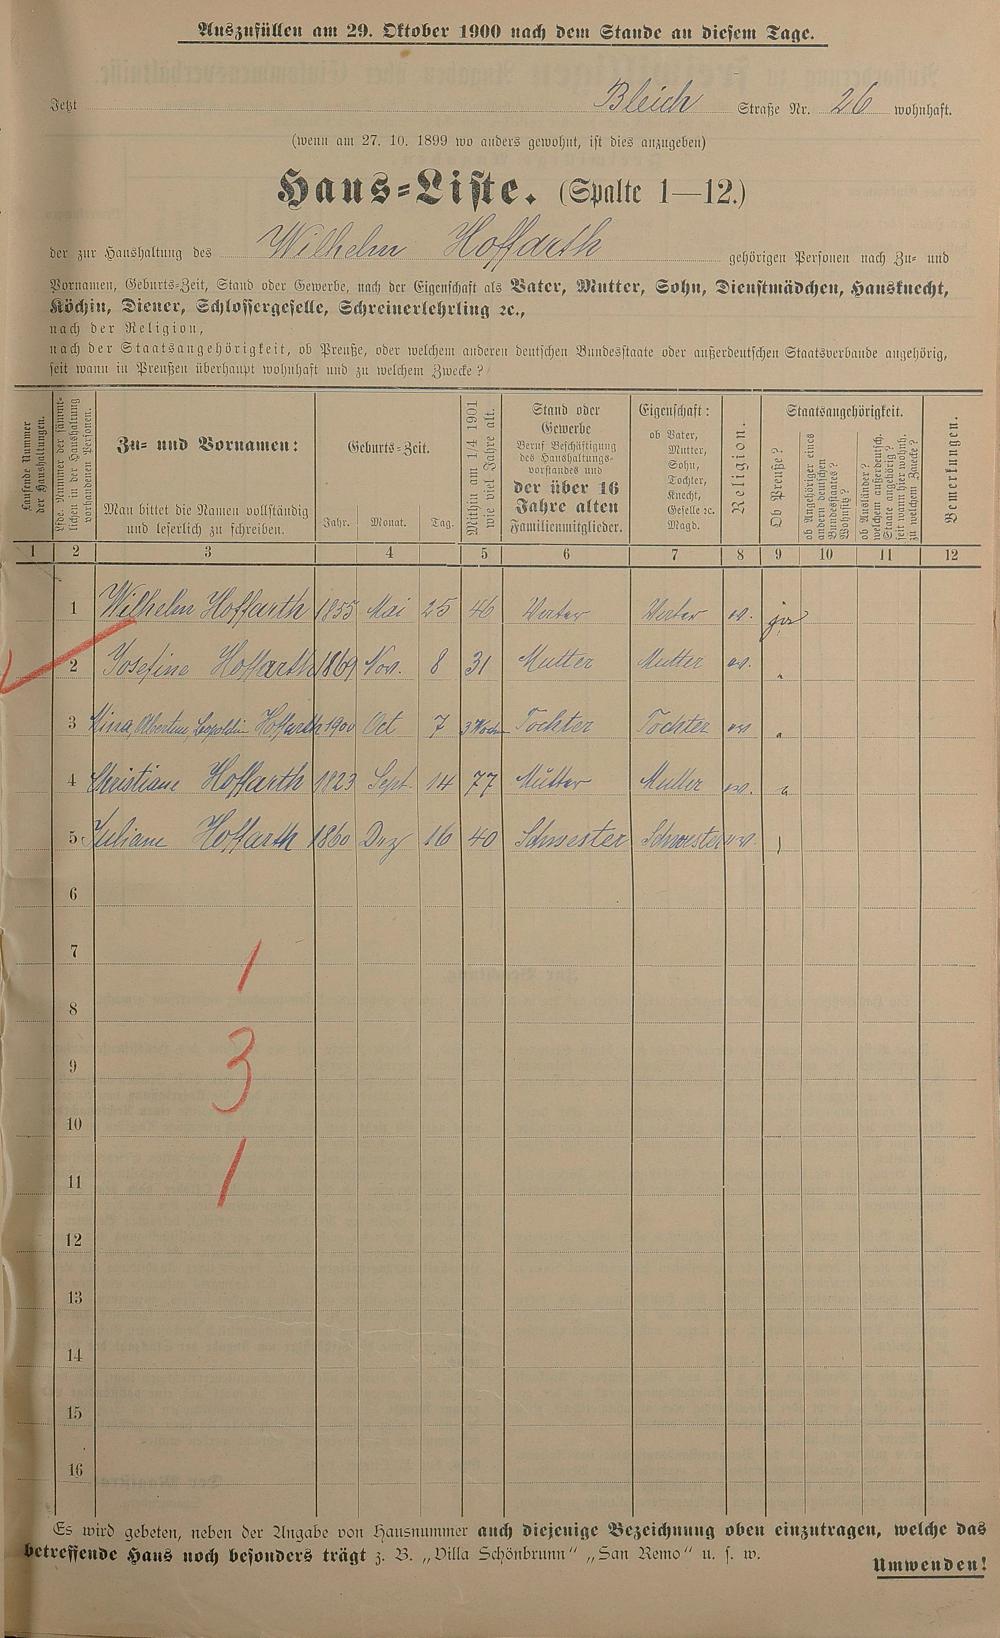 Auszufüllen am 29. Oktober 1900 nach dem Stande an diesem Tage.
Jetzt Bleich Straße Nr. 26 wohnhaft.
(wenn am 27. 10. 1899 wo anders gewohnt, ist dies anzugeben)
Haus-Liste. (Spalte 1—12.)
der zur Haushaltung des Wilhelm Hoffarth gehörigen Personen nach Zu- und
Vornamen, Geburts-Zeit, Stand oder Gewerbe, nach der Eigenschaft als Vater, Mutter, Sohn, Dienstmädchen, Hausknecht,
Köchin, Diener, Schlossergeselle, Schreinerlehrling ꝛc.,
nach der Religion,
nach der Staatsangehörigkeit, ob Preuße, oder welchem anderen deutschen Bundesstaate oder außerdeutschen Staatsverbande angehörig,
seit wann in Preußen überhaupt wohnhaft und zu welchem Zwecke?
Laufende Nummer der Haushaltungen.
Lfde. Nummer der sämmtlichen in der Haushaltung vorhandenen Personen.
Zu- und Vornamen:
Man bittet die Namen vollständig
und leserlich zu schreiben.
Geburts-Zeit.
Jahr. Monat. Tag.
Mithin am 1/4 1901 wie viel Jahre alt.
Stand oder
Gewerbe
Beruf Beschäftigung
des Haushaltungs-
vorstandes und
der über 16
Jahre alten
Familienmitglieder.
Eigenschaft:
ob Vater,
Mutter,
Sohn,
Tochter,
Knecht,
Geselle ꝛc.
Magd.
Religion.
Staatsangehörigkeit.
Ob Preuße?
ob Angehöriger eines andern deutschen Bundesstaates? Wohnsitz?
ob Ausländer? welchem außerdeutsch. Staate angehörig? seit wann hier wohnh. zu welchem Zwecke?
Bemerkungen.
1 2 3 4 5 6 7 8 9 10 11 12
1 Wilhelm Hoffarth 1855 Mai 25 46 ev. ja
2 Josefine Hoffarth 1869 Nov. 8 31 Mutter Mutter ev. "
3 Albertine, Leopoldin Hoffarth 1900 Oct 7 3 Wochen Tochter Tochter ev "
4 Christiane Hoffarth 1823 Sept. 14 77 Mutter Mutter ev. "
5 Juliane Hoffarth 1860 Dez 16 40 Schwester Schwester ev.
6
7
1
8
9
3
10
11
1
12
13
14
15
16
Es wird gebeten, neben der Angabe von Hausnummer auch diejenige Bezeichnung oben einzutragen, welche das
betreffende Haus noch besonders trägt z. B. „Villa Schönbrunn“ „San Remo“ u. s. w.
Umwenden!